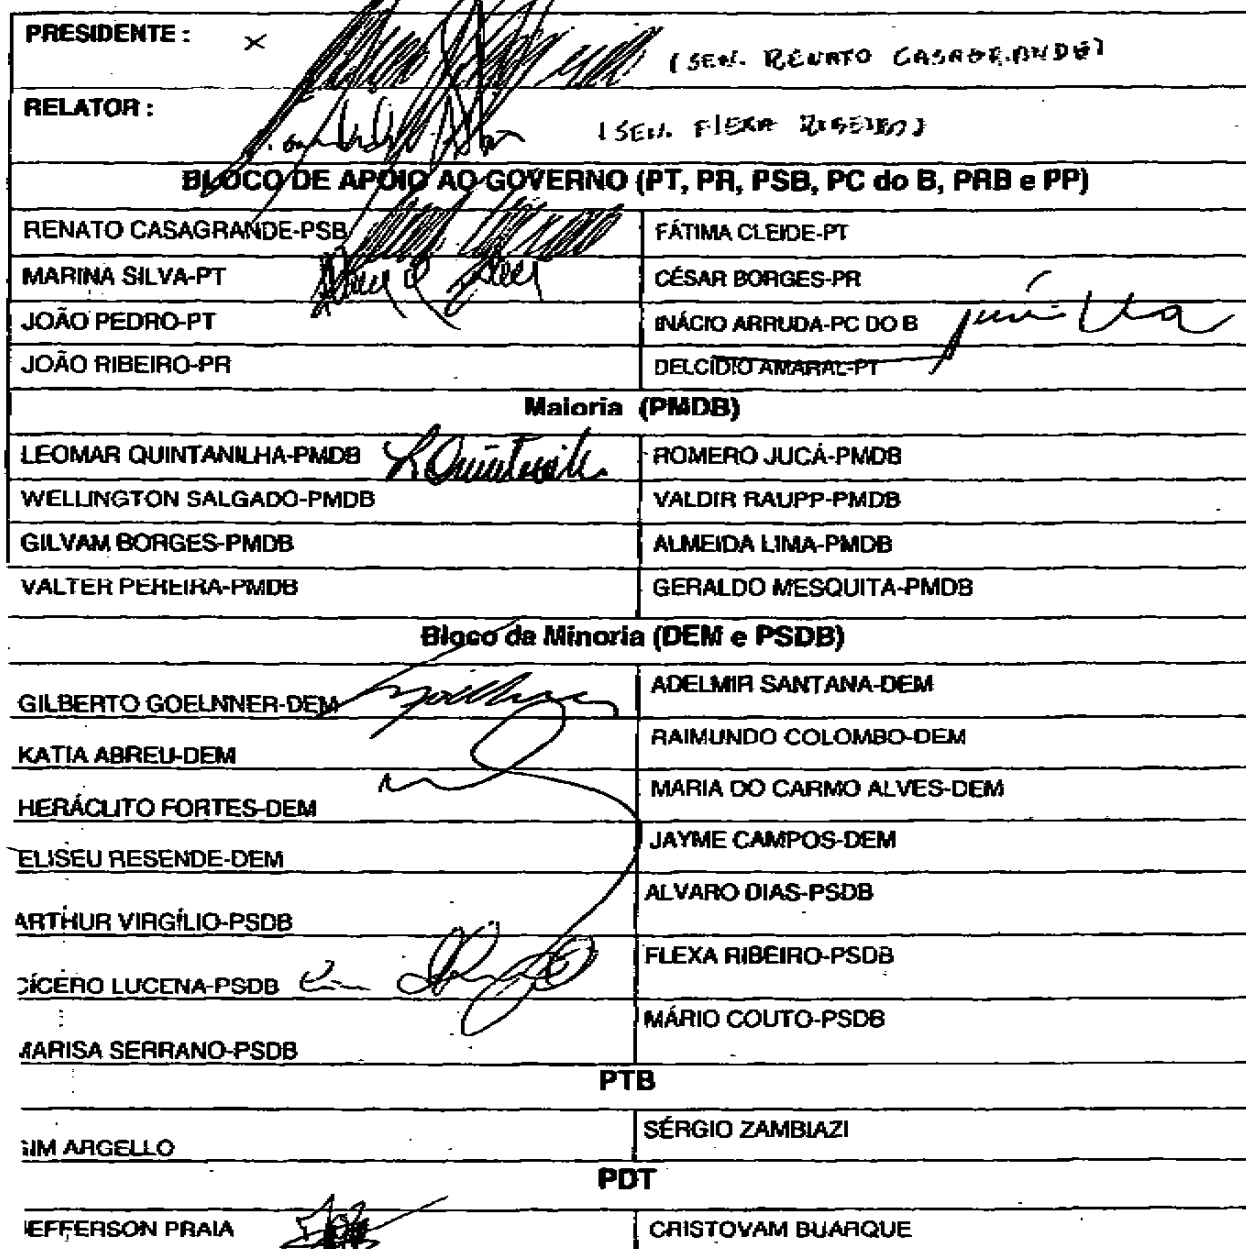 PRESIDENTE : × (SEN. RENATO CASAGRANDE)
RELATOR : (SEN. FLEXA RIBEIRO)
BLOCO DE APOIO AO GOVERNO (PT, PR, PSB, PC do B, PRB e PP)
RENATO CASAGRANDE-PSB FÁTIMA CLEIDE-PT
MARINA SILVA-PT CÉSAR BORGES-PR
JOÃO PEDRO-PT INÁCIO ARRUDA-PC DO B
JOÃO RIBEIRO-PR DELCÍDIO AMARAL-PT
Maioria (PMDB)
LEOMAR QUINTANILHA-PMDB ROMERO JUCÁ-PMDB
WELLINGTON SALGADO-PMDB VALDIR RAUPP-PMDB
GILVAM BORGES-PMDB ALMEIDA LIMA-PMDB
VALTER PEREIRA-PMDB GERALDO MESQUITA-PMDB
Bloco da Minoria (DEM e PSDB)
GILBERTO GOELNNER-DEM ADELMIR SANTANA-DEM
KATIA ABREU-DEM RAIMUNDO COLOMBO-DEM
HERÁCLITO FORTES-DEM MARIA DO CARMO ALVES-DEM
ELISEU RESENDE-DEM JAYME CAMPOS-DEM
ARTHUR VIRGÍLIO-PSDB ALVARO DIAS-PSDB
CÍCERO LUCENA-PSDB FLEXA RIBEIRO-PSDB
MARISA SERRANO-PSDB MÁRIO COUTO-PSDB
PTB
GIM ARGELLO SÉRGIO ZAMBIAZI
PDT
JEFFERSON PRAIA CRISTOVAM BUARQUE